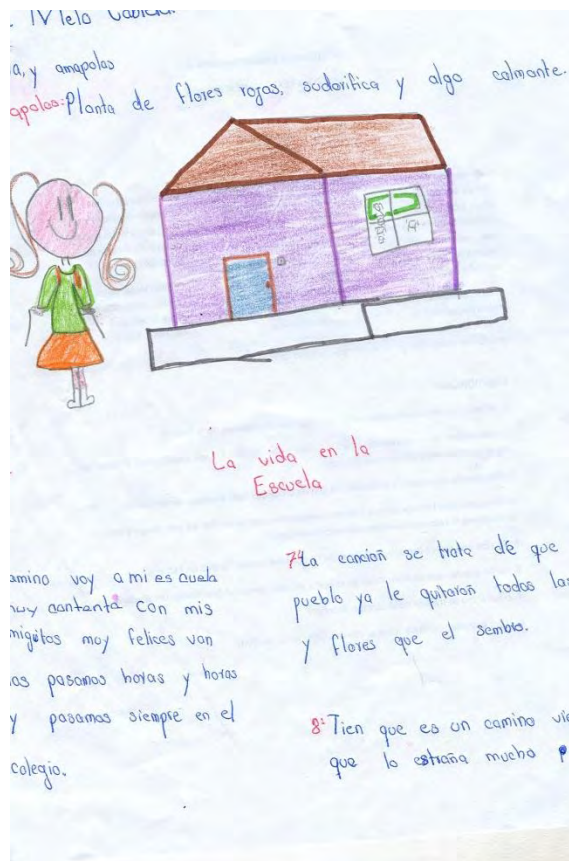 a, y amapolas
apolas: Planta de flores rojas, sudorifica y algo calmante.
La vida en la
Escuela
amino voy a mi escuela
muy contenta con mis
migitos muy felices van
os pasamos horas y horas
y pasamos siempre en el
colegio.
7ª La cancioñ se trata dé que
pueblo ya le quitaroñ todos la
y flores que el sembro.
8ª Tien que es un camino vi
que lo estraña mucho p